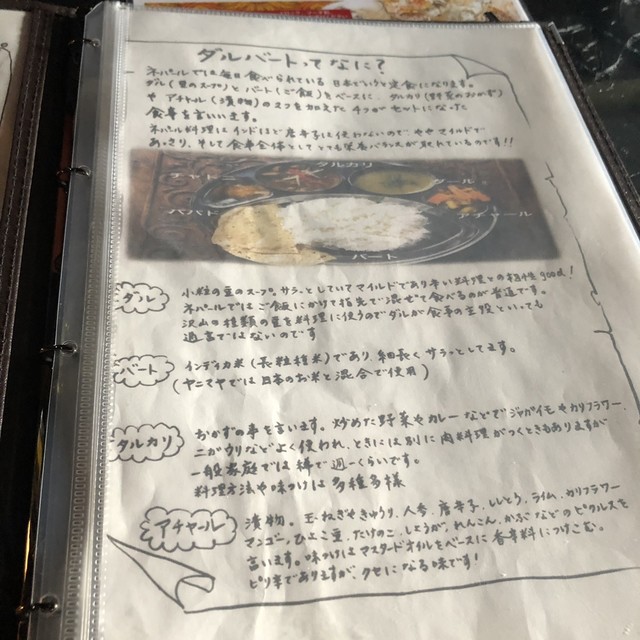 ダルバートってなに?
ネパールでは毎日食べられている日本でいう定食になります。
ダル(豆のスープ)とバート(ご飯)をベースに、タルカリ(野菜のおかず)
や アチャール(漬物)の2つを加えた4つがセットになった
食事を言います。
ネパール料理はインドほど唐辛子は使わないので ややマイルドで
あっさり、そして食事全体としても栄養バランスが取れているのです!!
タルカリ
ダル
アチャール
バート
ダル
小粒の豆のスープ。サラっとしていてマイルドであり辛い料理との相性good!
ネパールではご飯にかけて指先で混ぜて食べるのが普通です。
沢山の種類の豆を料理に使うのでダルが食事の主役といっても
過言ではないのです
バート
インディカ米(長粒種米)であり、細長くサラっとしてます。
(ヤニマヤでは日本のお米と混合で使用)
タルカリ
おかずの事を言います。炒めた野菜やカレーなどでジャガイモやカリフラワー、
ニガウリなどよく使われ、ときには別に肉料理がつくときもありますが
一般家庭では 週一くらいです。
料理方法や味付けは多種多様
アチャール
漬物。玉ねぎやきゅうり、人参、唐辛子、ししとう、ライム、カリフラワー
ズッコニー、ひよこ豆、たけのこ、しょうが、れんこん、かぶなどのピクルスを
言います。味付けはマスタードオイルをベースに香辛料につけこむ。
ピリ辛でありますが、クセになる味です!